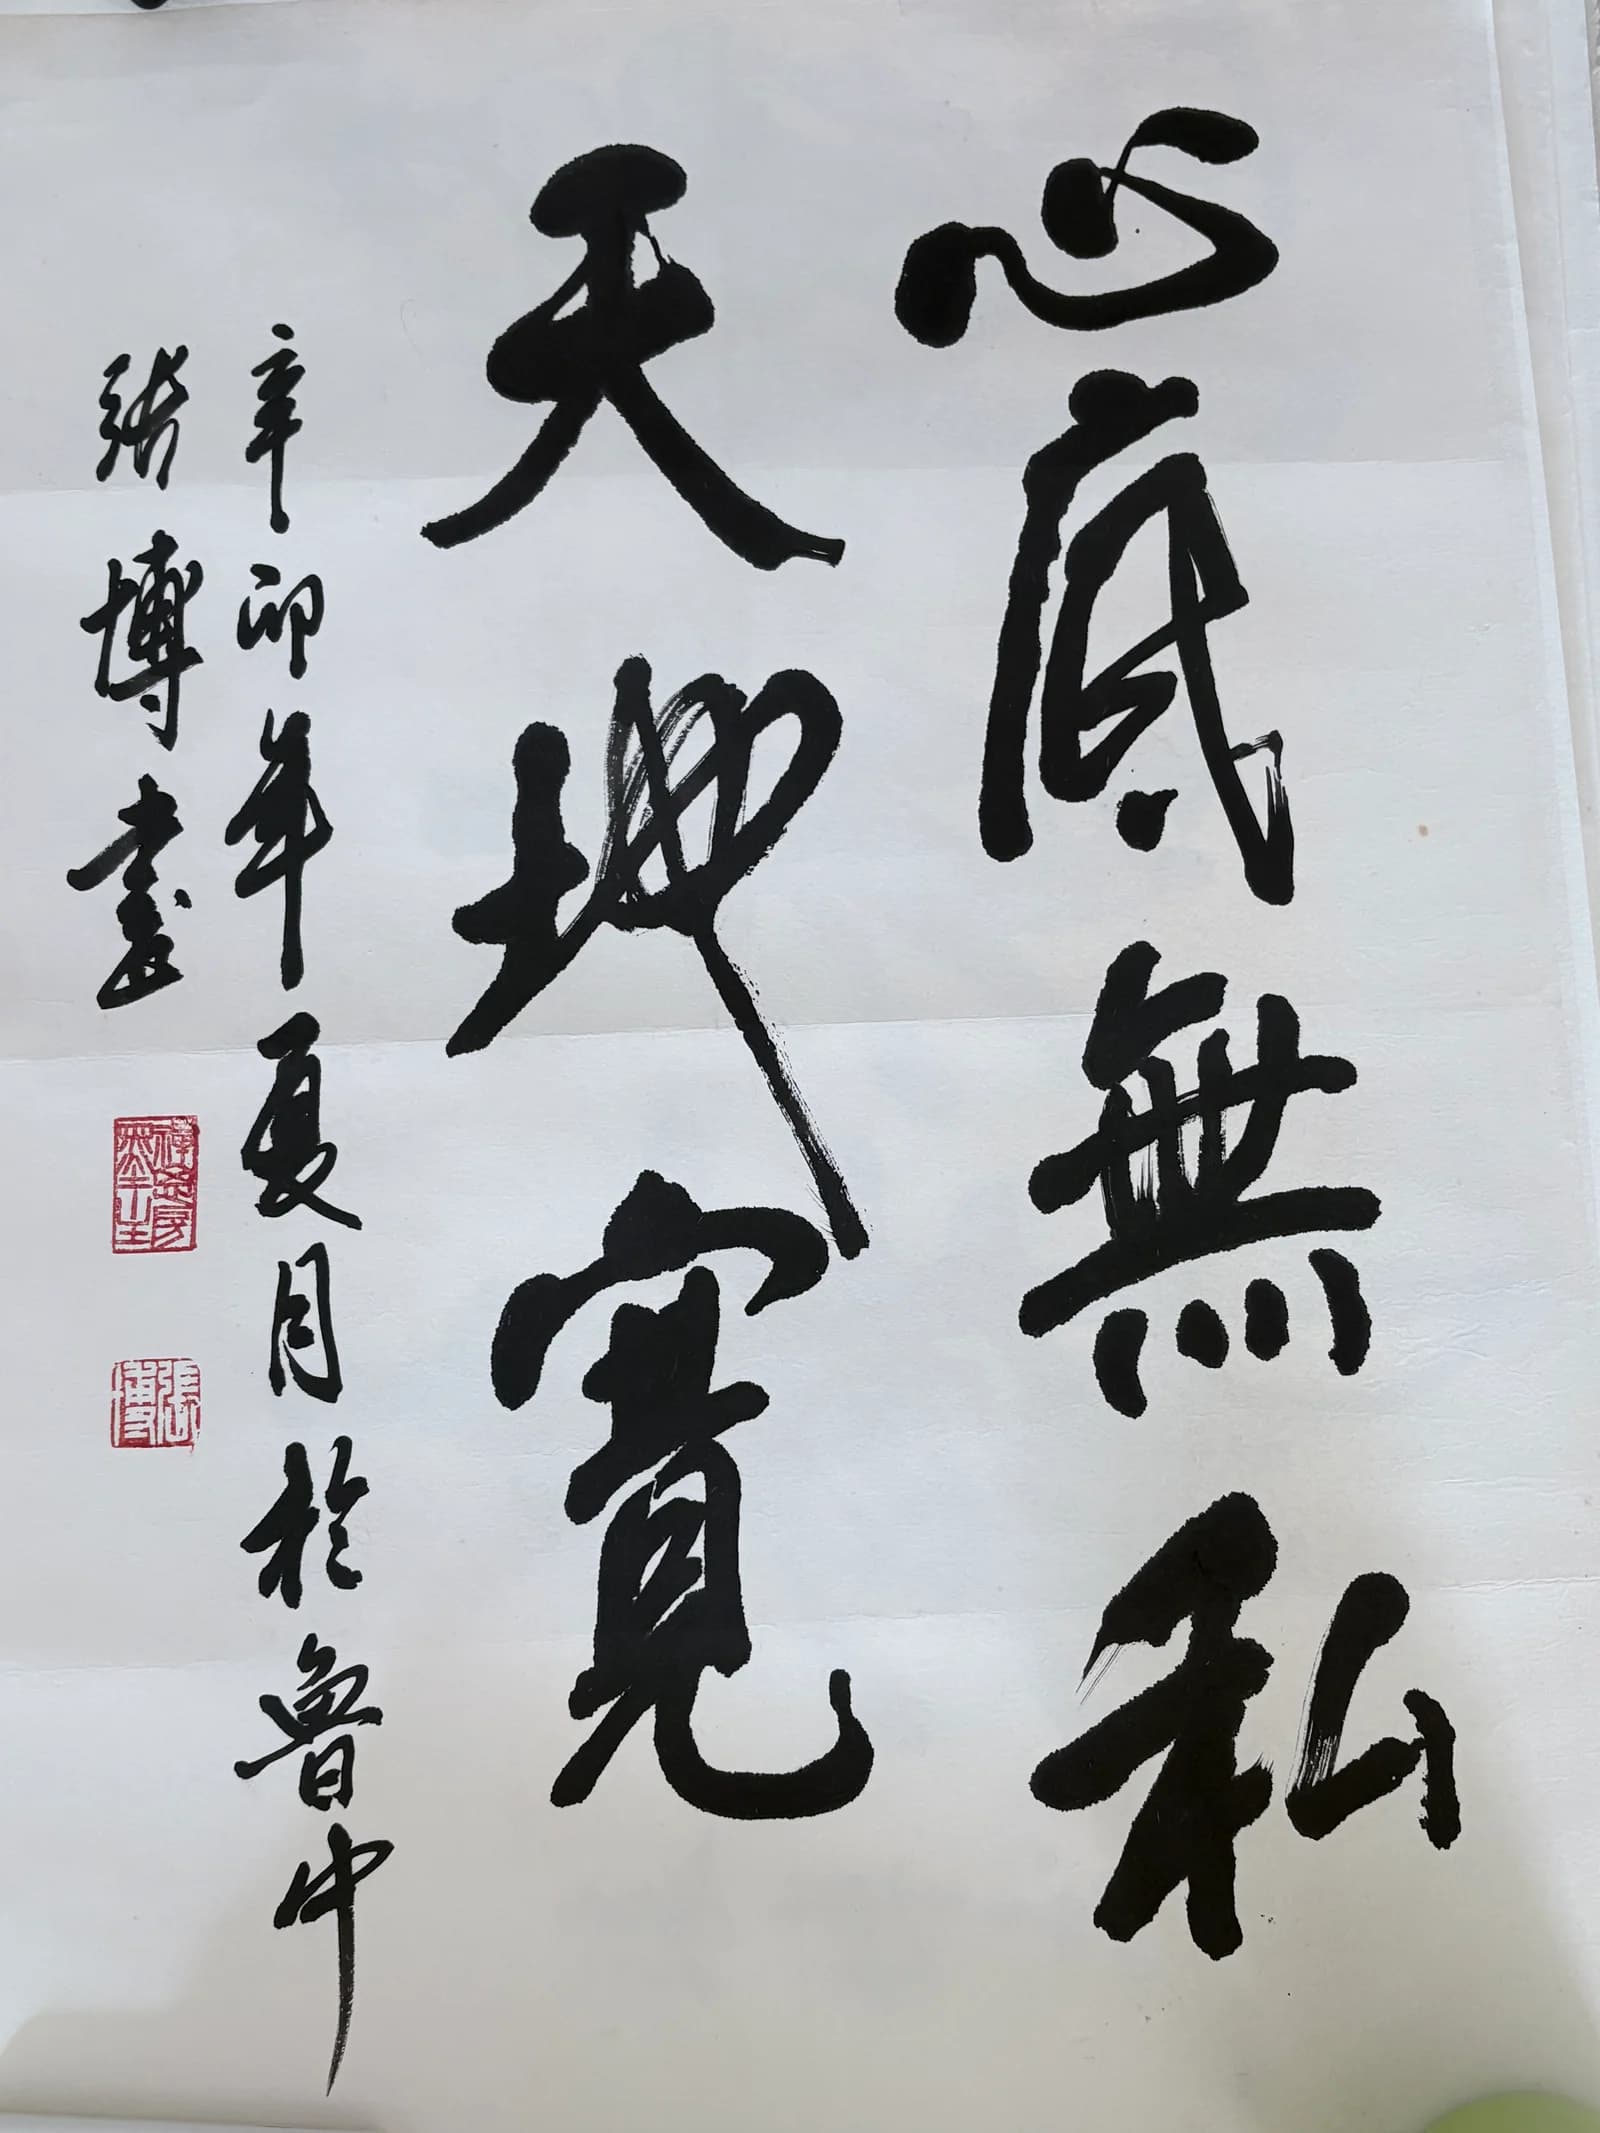 心底無私
天地寬
辛卯年夏月於魯中
張博書
張博